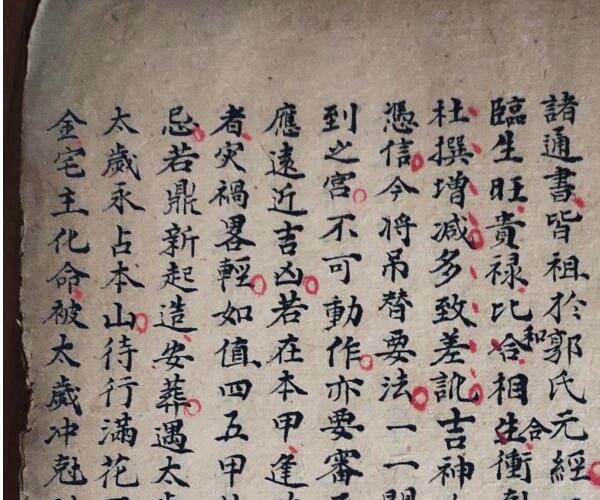 諸通書皆祖於郭氏元經
臨生旺貴禄比和合相生合衝
杜撰增减多致差訛吉神
憑信今将吊替要法一一開
到之宫不可動作亦要審
應遠近吉凶若在本甲逢
者灾禍畧輕如值四五甲
忌若鼎新起造安葬遇太歲
太歲永占本山待行滿花甲
金宅主化命被太歲冲尅